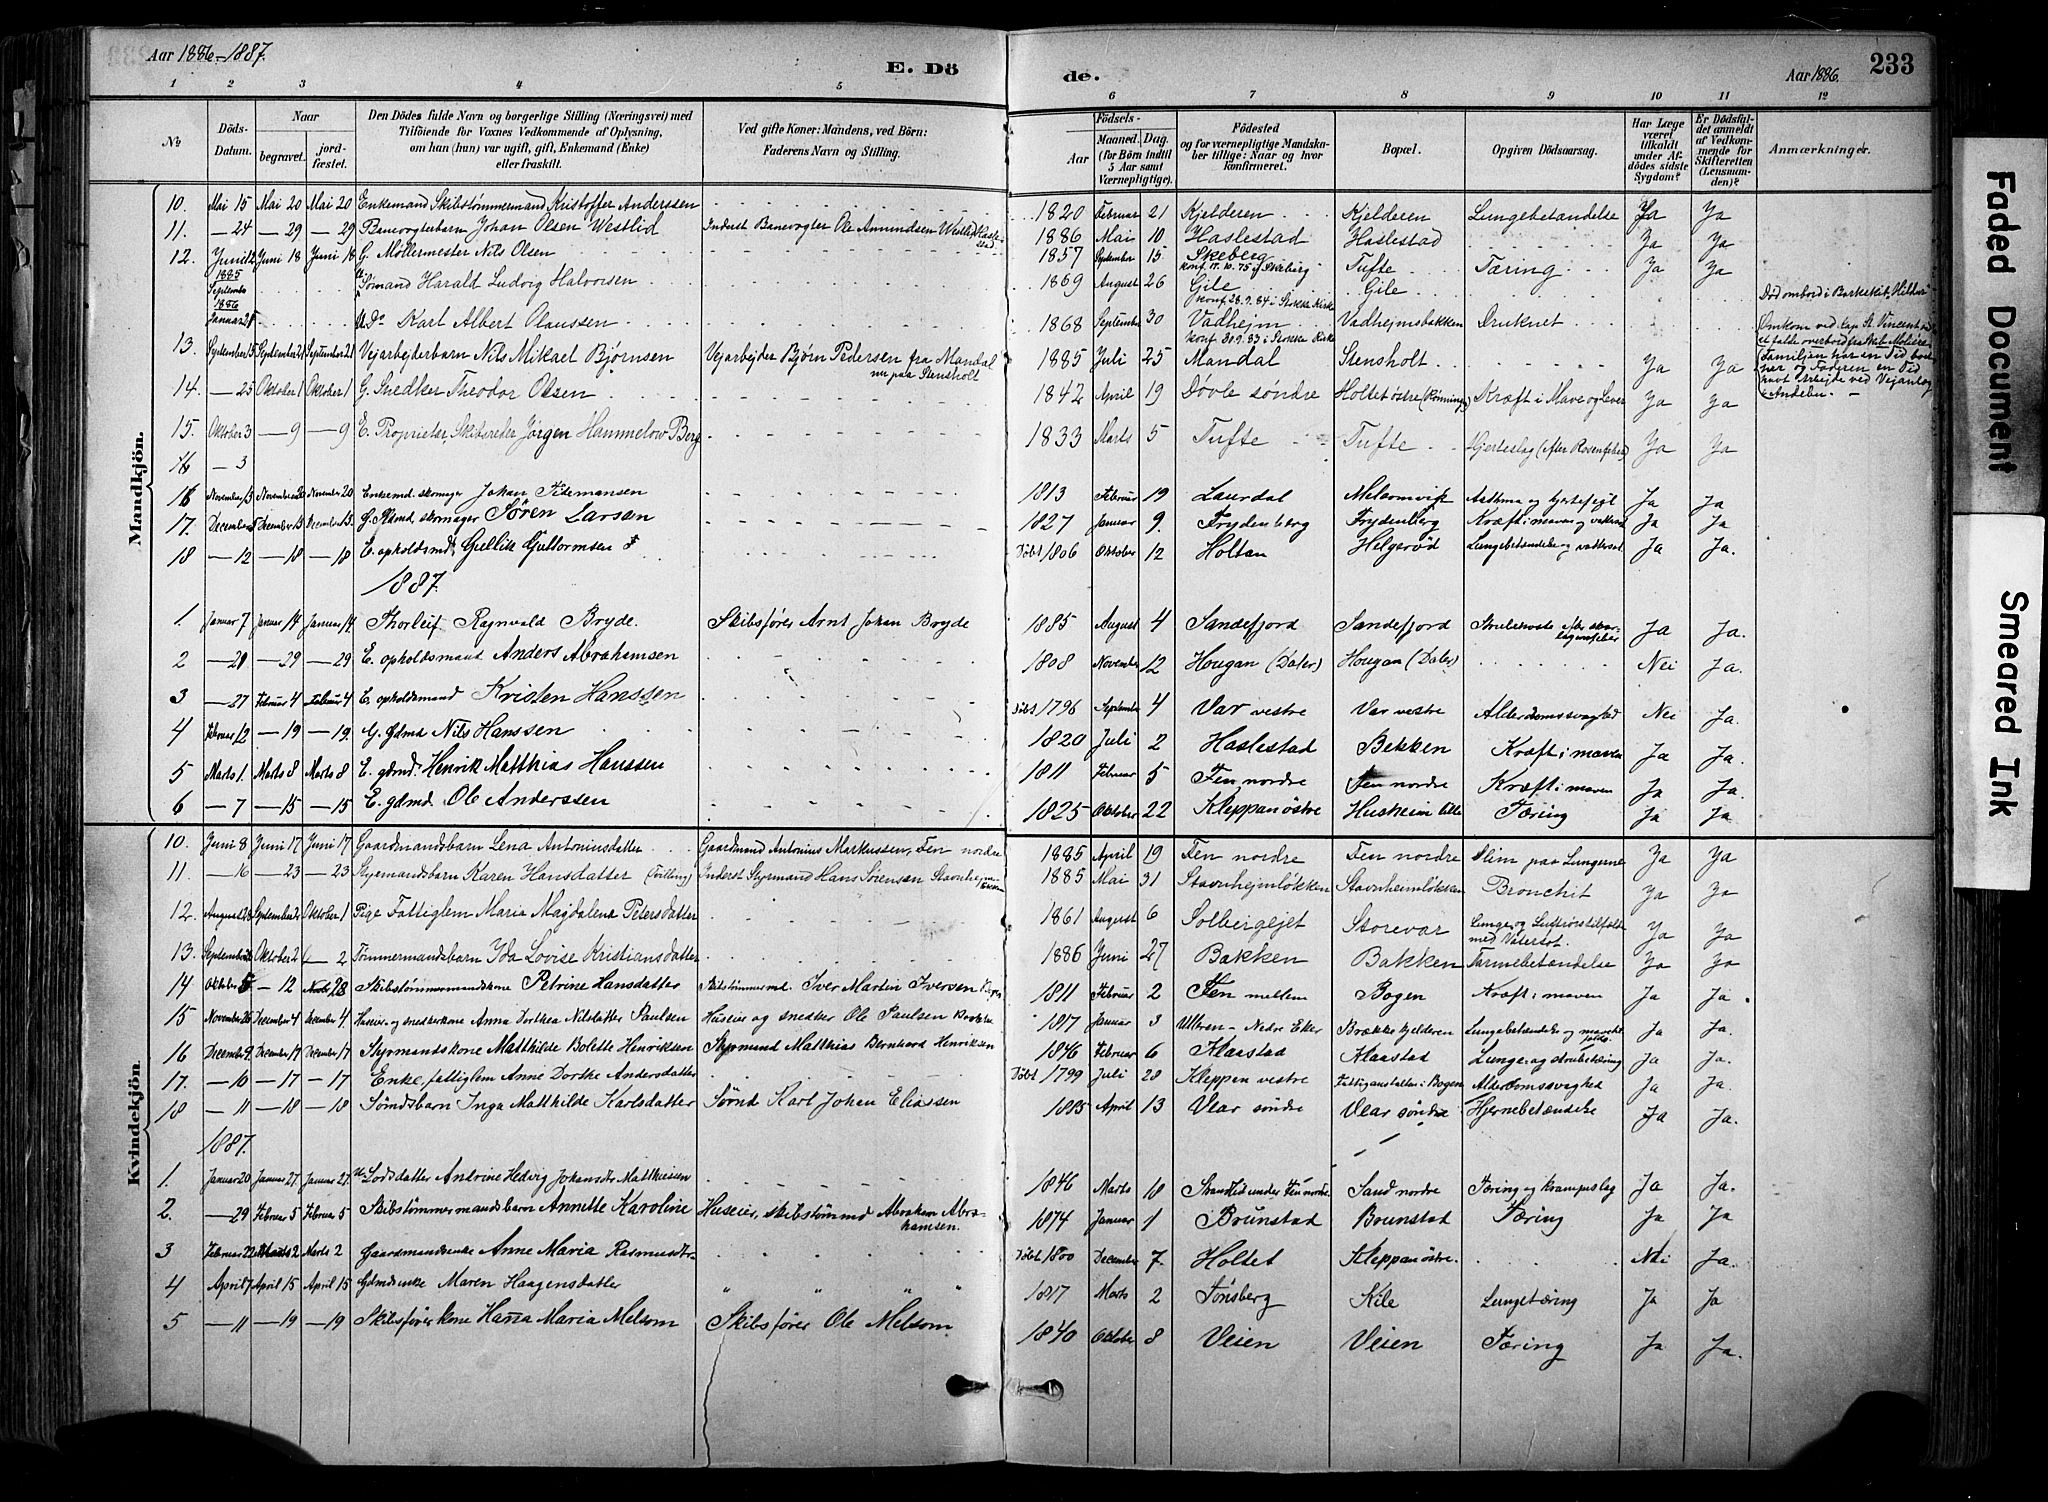 Aar 1886-1887.
E. Dö
de.
Aar 1886.
233
1 2 3 4 5 6 7 8 9 10 11 12
No.
Döds-Datum.
Naar
begravet.
jordfæstet.
Den Dödes fulde Navn og borgerlige Stilling (Næringsvei) med
Tilföiende for Voxnes Vedkommende af Oplysning,
om han (hun) var ugift, gift, Enkemand (Enke)
eller fraskilt.
Ved gifte Koner: Mandens, ved Börn:
Faderens Navn og Stilling.
Födsels-
Aar
Maaned. Dag.
(for Börn indtil
5 Aar samt
Værnepligtige).
Födested
og for værnepligtige Mandskaber tillige: Naar og hvor
konfirmeret.
Bopæl.
Opgiven Dödsaarsag.
Har Læge
været
tilkaldt
under Afdödes sidste
Sygdom?
Er Dödsfaldet anmeldt
af Vedkommende for
Skifteretten
(Lensmanden)?
Anmærkninger.
Mandkjön.
10. Mai 15 Mai 20 Mai 20 Enkemand Skibstömmermand Kristoffer Anderssen 1820 Februar 21 Kjelderen Kjelderen Lungebetændelse Ja Ja
11. — 24 — 29 — 29 Banevogterbarn Johan Olsen Westlid Inderst Banevogter Ole Amundsen Westlid Haslestad 1886 Mai 10 Haslestad Haslestad Ja Ja
12. Juni 12 Juni 18 Juni 18 G. Möllermester Nils Olsen 1857 September 15 Skeberg konf. 17.10.75 i Skeberg Tufte Tæring Ja Ja
1885 September Sömand Harald Ludvig Halvorsen 1869 August 26 Gile konf. 28.9.84 i Stokke Kirke Gile Död ombord i Barkskibet "Hilda"
1886 Januar 28 U. Do Karl Albert Olaussen 1868 September 30 Vadhejm konf. 30.9.83 i Stokke Kirke Vadhejmsbakken Druknet Omkom ved Cap St. Vincent
13. September 15 September 21 September 21 Vejarbejderbarn Nils Mikael Bjørnsen Vejarbejder Bjørn Pedersen fra Mandal nu paa Stensholt 1885 Juli 25 Mandal Stensholt Ja Ja Familjen har en Tid
og Faderen en Tid
havt Arbejde ved Vejanlæg
i Andebu. —
14. — 25 Oktober 1 Oktober 1 G. Snedker Theodor Olsen 1842 April 19 Døvle søndre Holtet østre (Rønningen) Kræft i Mave og Lever Ja Ja
15. Oktober 3 — 9 — 9 E. Proprietær, Skibsreder Jørgen Hammelow Berg 1833 Marts 5 Tufte Tufte Hjerteslag (efter Rosenfeber) Ja Ja
16 — 3
16 November 13 November 20 November 20 Enkemd. skomager Johan Tidemansen 1813 Februar 19 Laurdal Melsomvik Asthma og hjertefejl Ja Ja
17. December 5 December 13 December 13. G. skomager Sören Larsen 1827 Januar 9. Frydenberg Frydenberg Kræft i maven Ja Ja
18 — 12 — 18 — 18 E. opholdsmd. Gullik Guttormsen Döbt 1806 Oktober 12 Holtan Helgeröd Lungebetændelse og vattersot Ja Ja.
1887.
1 Januar 7 Januar 14 Januar 14 Thorleif Ragnvald Bryde. Skibsförer Arnt Johan Bryde 1885 August 4 Sandefjord Sandefjord Strubehoste efter skarlagensfeber Ja Ja.
2 — 21 — 29 — 29 E. opholdsmand Anders Abrahamsen 1808 November 12 Hougan (Daler) Hougan (Daler) Nei Ja.
3 — 27 Februar 4 Februar 4 E. opholdsmand Kristen Hanssen Döbt 1796 September 4 Var vestre Var vestre Alderdomssvaghed Nei Ja.
4 Februar 12 — 19 — 19. G. Gdmd Nils Hanssen 1820 Juli 2 Haslestad Bekken Kræft i maven Ja Ja.
5 Marts 1. Marts 8 Marts 8 E. gdmd. Henrik Matthias Hanssen 1811 Februar 5 Fen nordre Fen nordre Kræft i maven Ja Ja.
6 — 7 — 15 — 15 E. gdmd Ole Anderssen 1825 Oktober 22 Kleppan östre Huskeim lille Tæring Ja Ja
Kvindekjön.
10. Juni 8 Juni 17 Juni 17 Gaardmandsbarn Lena Antoniusdatter Gaardmand Antonius Markussen, Fen nordre 1885 April 19 Fen nordre Fen nordre Slim paa Lungerne Ja Ja
11. — 16 — 23 — 23 Styrmandsbarn Karen Hansdatter (Tvilling) Inderst Styrmand Hans Sörensen Stavnhejmløkken 1885 Mai 31 Stavnhejmløkken Stavnheimløkken Bronchit Ja Ja
12. August 28 September 2 Oktober 1 Pige Fattiglem Maria Magdalena Petersdatter 1861 August 6 Solbergejet Storevar Lunge og Luftrørstilfælde med Vatersot. Ja Ja
13. September Oktober 2 — 2 Tömmermandsbarn Ida Lovise Kristiansdatter 1886 Juni 27 Bakken Bakken Tarmebetændelse Ja Ja
14 Oktober 5 — 12 28 Skibstömmermandskone Petrine Hansdatter Skibstömmermd. Iver Martin Iversen Bogen 1811 Februar 2 Fen mellem Bogen Kræft i maven Ja Ja.
15 November 26 December 4 December 4 Huseier og snedkerkone Anna Dorthea Nilsdatter Paulsen Huseier og snedker Ole Paulsen 1817 Januar 3 Ulleren - Nedre Eker Brække kjelderen Lungebetændelse Ja Ja.
16 December 9 December 17 December 17 Styrmandskone Matthilde Bolette Henriksen Styrmand Matthias Bernhard Henriksen 1846 Februar 6 Klaastad Klaastad Lunge- og strubetæring Ja Ja.
17. — 10 — 17 — 17 Enke, fattiglem Anne Dorthe Andersdatter Döbt 1799 Juli 28 Kleppan vestre Fattiganstalten i Bogen Alderdomssvaghed Ja Ja.
18 — 11 — 18 — 18 Sömdsbarn Inga Matthilde Karlsdatter Sömd Karl Johan Eliassen 1885 April 13 Vear söndre Vear söndre Hjernebetændelse Ja Ja.
1887.
1. Januar 20 Januar 27. Januar 27. Lodsdatter Andrine Hedvig Johansdr Matthiesen 1846 Marts 18 Strandtid under Fen nordre. Sand nordre Tæring og krampeslag Ja Ja.
2. — 29 Februar 5 Februar 5 Skibstömmermandsbarn Annette Karoline Huseier, skibstömmd Abraham Abrahamsen. 1874 Januar 1 Brunstad Brunstad Tæring Ja Ja
3 Februar 22 Marts 2 Marts 2 Gaardmandsenke Anne Maria Rasmusdr. Döbt 1800 December 7. Holtet Kleppan östre. Nei Ja.
4 April 7 April 15 April 15 Gdmdsenke Maren Haagensdatter " " " " 1817 Marts 2 Tönsberg Kile Lungetæring Ja Ja
5 — 11 — 19 — 19 Skibsförerkone Hanna Maria Melsom Skibsförer Ole Melsom 1840 Oktober 8 Veien Veien Tæring Ja Ja.
Faded Document
Smeared Ink